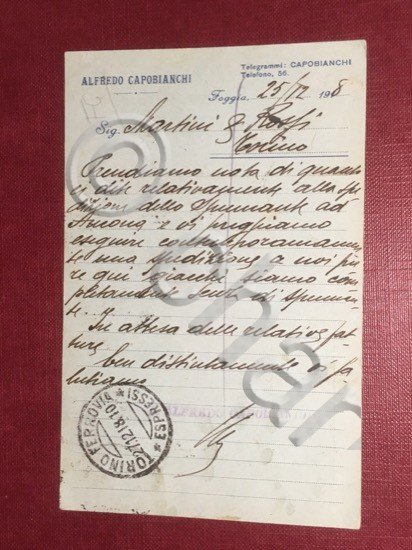 Telegrammi: CAPOBIANCHI
Telefono, 56.
ALFREDO CAPOBIANCHI
Foggia, 25/12 1918
Sig. Martini & Rossi
Torino
Prendiamo nota di quanto
ci dite relativamente alla spe
dizione dello Spumante ad
e vi preghiamo
eseguire contemporaneamen
te una spedizione a noi pu
re qui giacchè siamo com
pletamente senza di Spuman
te.
In attesa delle relative fat
ture
ben distintamente vi sa
lutiamo
ALFREDO CAPOBIANCHI
TORINO FERROVIA
ESPRESSI
27.12.18.10